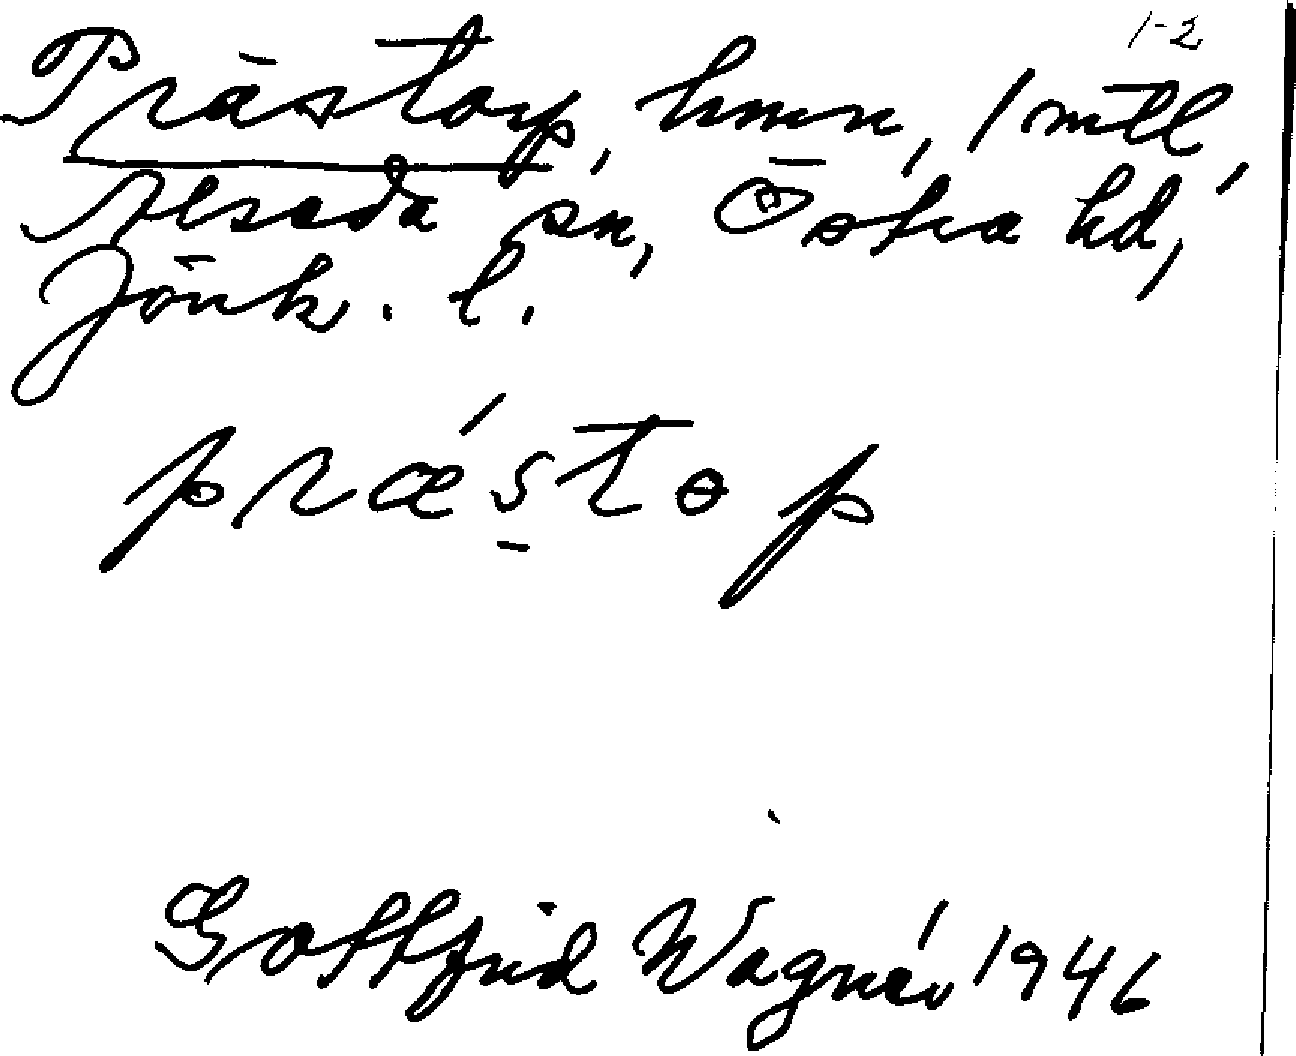 1-2
Prästorp, hmn, 1 mtl,
Alseda sn, Östra hd,
Jönk. l.
præ´stɵp
Gottfrid Wagnér 1946